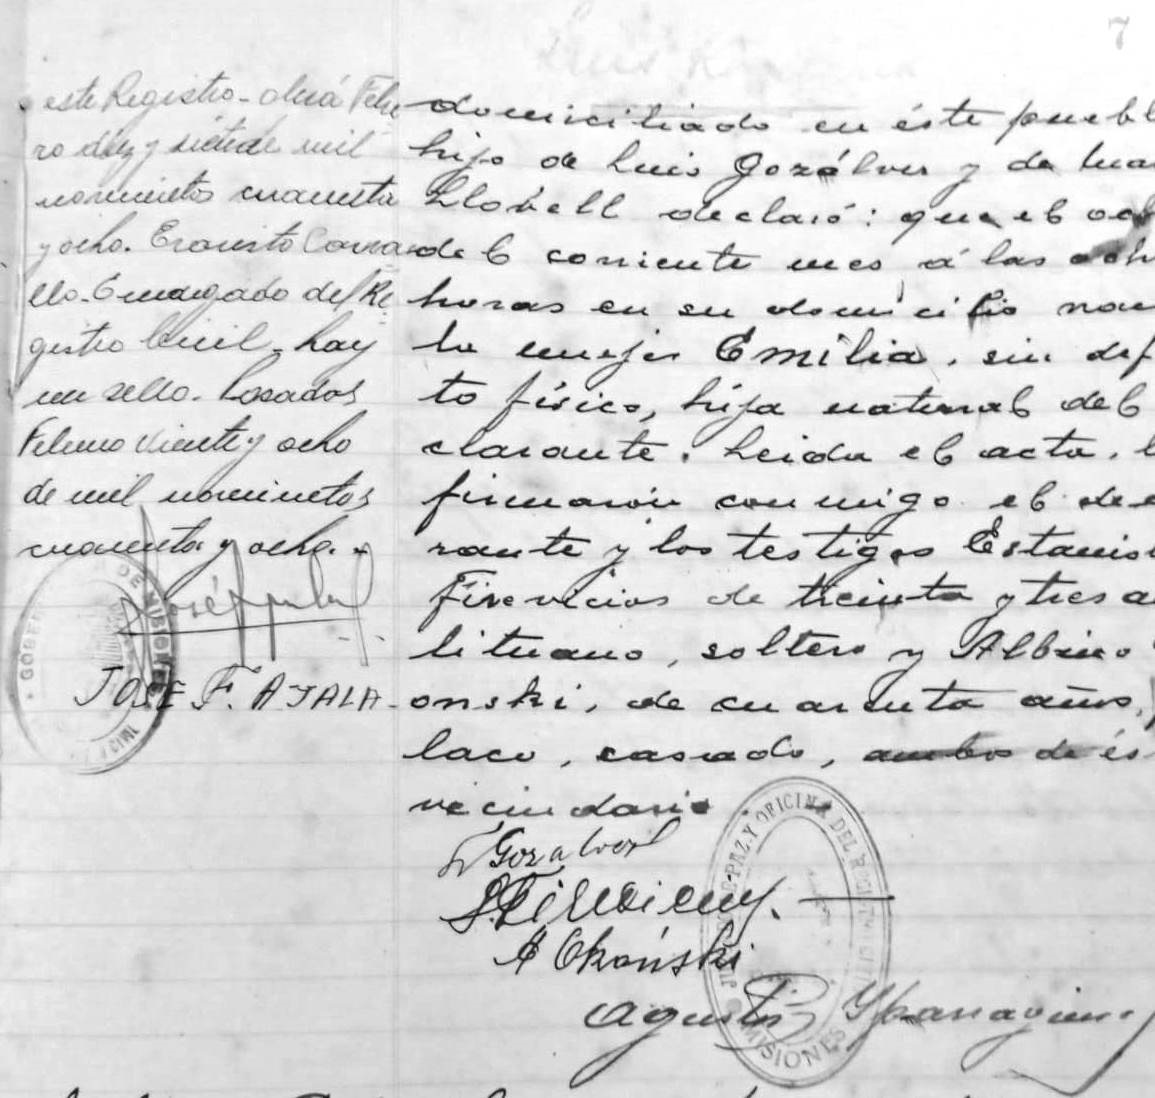 7
este Registro - Oberá Febre
ro diez y siete de mil
novecientos cuarenta
y ocho. Ernesto
llo - Encargado del Re
gistro Civil - hay
un sello - Posadas
Febrero veinte y ocho
de mil novecientos
cuarenta y ocho. -
JOSE F. AYALA -
domiciliado en éste puebl
hijo de Luis Gozálvez y de
Llobell declaró: que el
del corriente mes á las och
horas en su domicilio nac
la mujer Emilia, sin def
to físico, hija natural del
clarante. Leida el acta, l
firmaron conmigo el de
rante y los testigos Estanis
Firevicios de treinta y tres a
lituano, soltero y Albino
onski, de cuarenta años, p
laco, casado, ambos de és
vecindario
L Gozalvez
A Okoński
Agustín
GOBER DE MISIONES
JUZGADO DE PAZ Y OFICINA DEL REGISTRO CIVIL
MISIONES